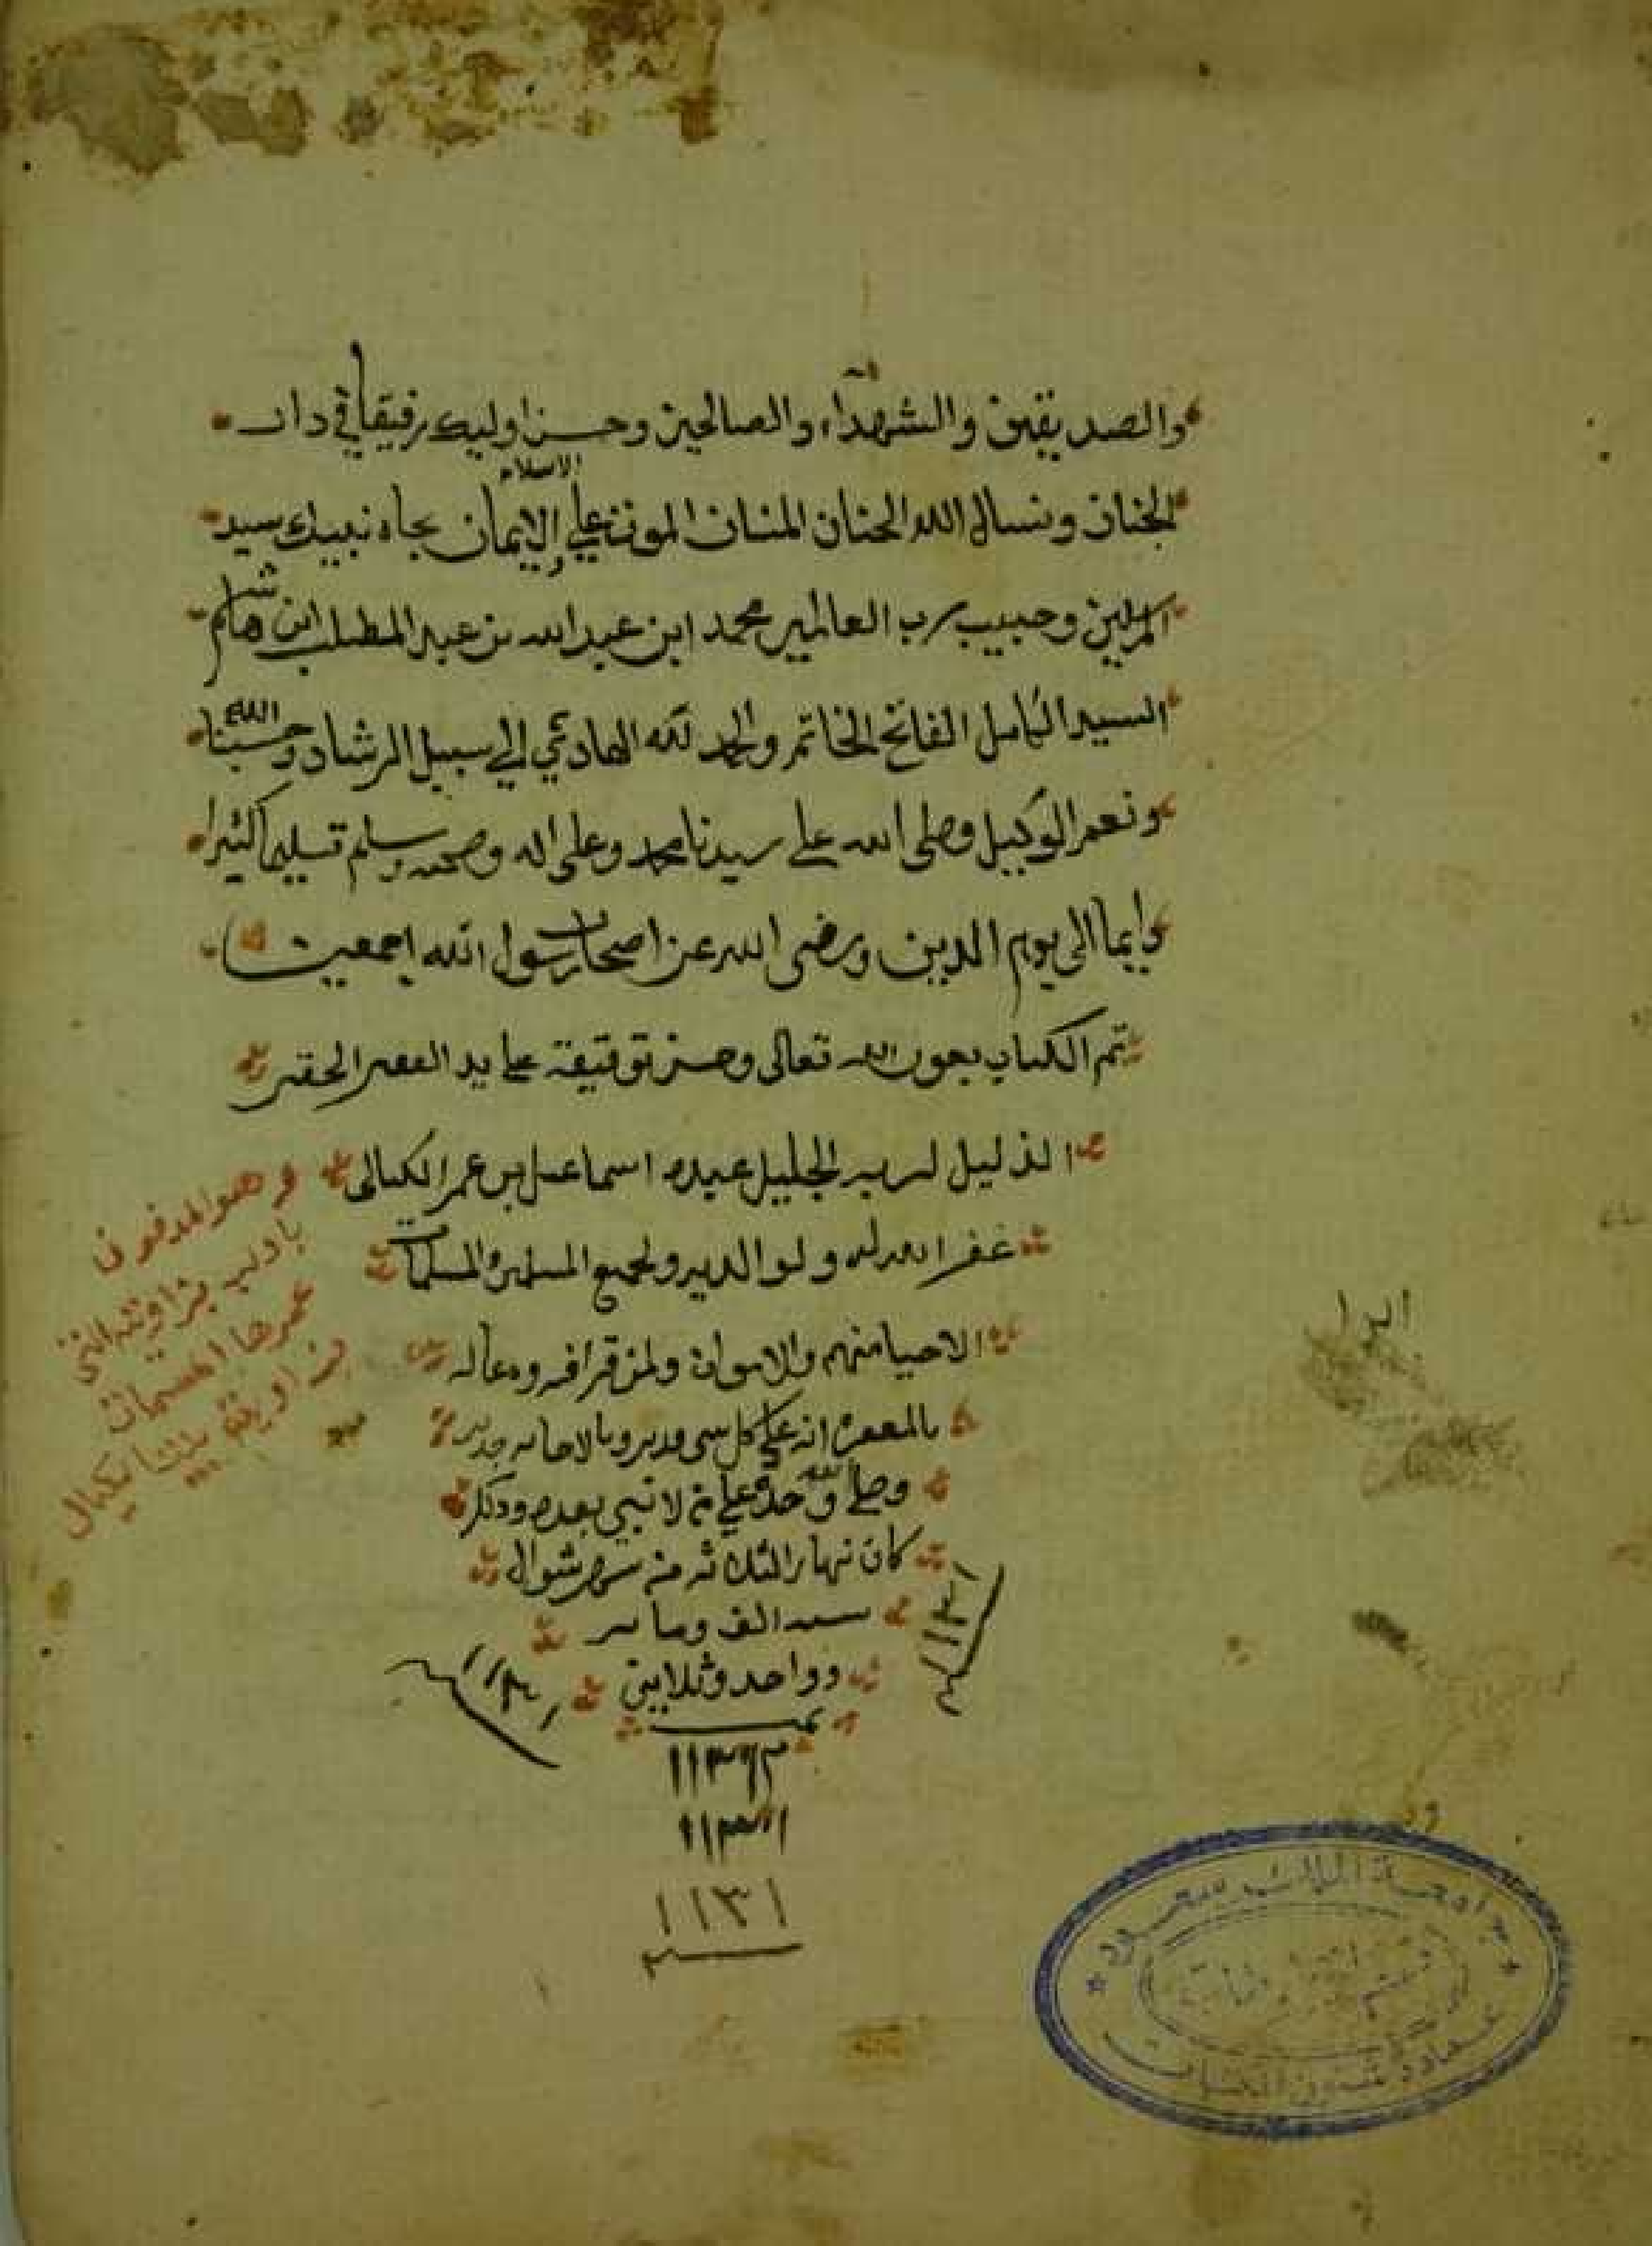 والصديقين والشهداء والصالحين وحسن اوليك رفيقا في دار
الجنان ونسال الله الحنان المنان الموت على الاسلام والايمان بجاه نبيك سيد
المرسلين وحبيب رب العالمين محمد ابن عبد الله بن عبد المطلب ابن هاشم
السيد الكامل الفاتح الخاتم والحمد لله الهادي الي سبيل الرشاد وحسبنا الله
ونعم الوكيل وصلى الله على سيدنا محمد وعلى اله وصحبه وسلم تسليما كثيرا
دايما الى يوم الدين ورضى الله عن اصحاب رسول الله اجمعين
تم الكتاب بعون الله تعالى وحسن توفيقه على يد الفقير الحقير
الذليل لربه الجليل عبده اسماعيل بن عمر الكيالى
وهو المدفون
غفر الله له ولوالديه ولجميع المسلمين والمسلمات
الاحيا منهم والاموات ولمن قرا فيه ودعا له
عمرها المسمات
بالمغفره انه على كل شى قدير وبالاجابه جدير
وصلى الله وحده على من لا نبي بعده وذلك
كان نهار الثلاثه من شهر شوال
سنه الف ومايه
وواحد وثلاثين
١١٣١
١١٣١
تمت
١١٣١
جامعة الملك سعود
عمادة شؤون المكتبات